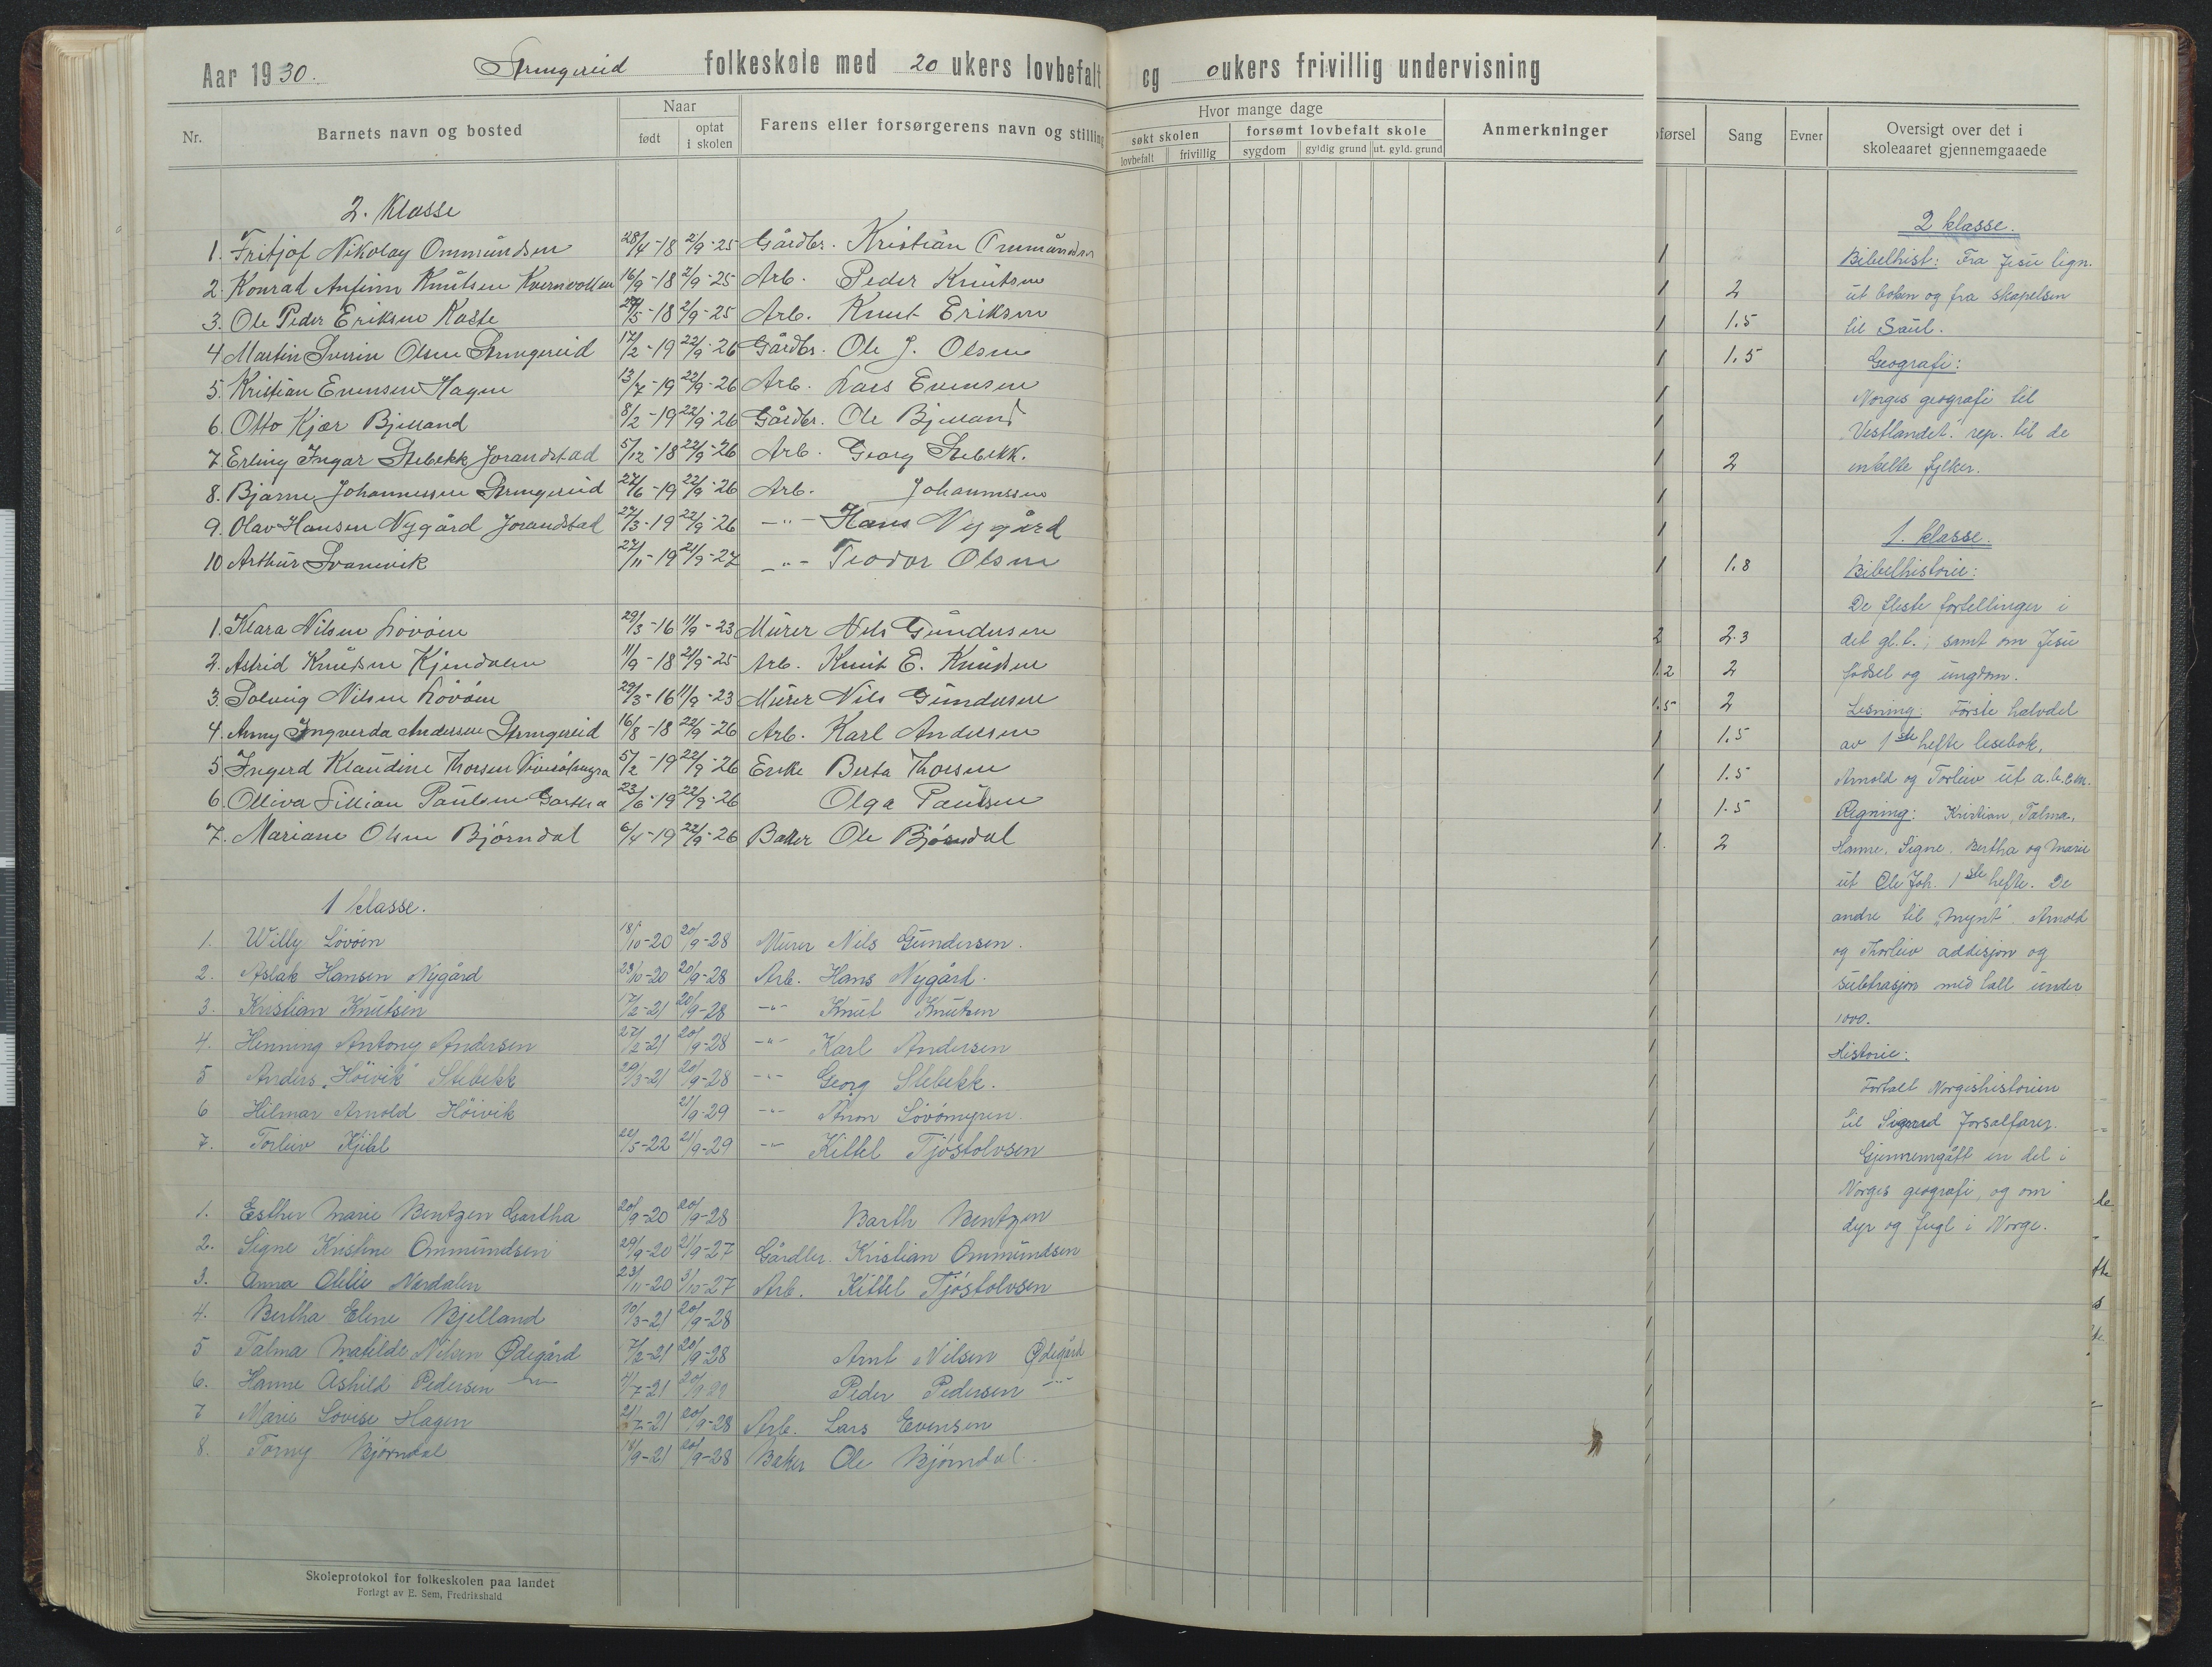 Aar 1930. Strengereid folkeskole med 20 ukers lovbefalt og 0 ukers frivillig undervisning
Nr.
Barnets navn og bosted
Naar
født
optat i skolen
Farens eller forsørgerens navn og stilling
Hvor mange dage
søkt skolen
forsømt lovbefalt skole
lovbefalt
frivillig
sygdom
gyldig grund
ut. gyld. grund
Anmerkninger
førsel
Sang
Evner
Oversigt over det i
skoleaaret gjennemgaaede
2. Klasse
1. Fritjof Nikolay Ommundsen 28/4-18 2/9-25 Gårdbr. Kristian Ommundsen 1
2. Konrad Anfinn Knutsen Kvernvollen 16/9-18 2/9-25 Arb. Peder Knutsen 1 2
3. Ole Peder Eriksen Kaste /5-18 2/9-25 Arb. Knut Eriksen 1 1.5
4 Martin Sverin Olsen Strengereid 17/2-19 22/9-26 Gårdbr. Ole J. Olsen 1 1.5
5. Kristian Evensen Hagen 13/7-19 22/9-26 Arb. Lars Evensen 1
6. Otto Kjær Bjelland 8/2-19 22/9-26 Gårdbr. Ole Bjelland 1
7. Erling Ingar Stebekk Jorandstad 5/12-18 22/9-26 Arb. Georg Stebekk. 1 2
8. Bjarne Johannessen Strengereid 27/6-19 22/9-26 Arb. Johannessen 1
9. Olav Hansen Nygård Jorandstad 27/3-19 22/9-26 -"- Hans Nygård 1
10 Arthur Svanevik 27/11-19 21/9-27 -"- Teodor Olsen 1 1.8
1. Klara Nilsen Lövåen 29/3-16 11/9-23 Murer Nils Gundersen 2 2.3
2. Astrid Knudsen Kjendalen 11/9-18 21/9-25 Arb. Knut E. Knudsen 1.2 2
3. Solveig Nilsen Lövåen 29/3-16 11/9-23 Murer Nils Gundersen 1.5 2
4. Anny Ingverda Andersen Strengereid 16/8-18 22/9-26 Arb. Karl Andersen 1 1.5
5 Ingerd Klaudine Thorsen 5/2-19 22/9-26 Enke Berta Thorsen 1 1.5
6. Olliva Lillian Paulsen Gartha 23/6-19 22/9-26 Olga Paulsen 1 1.5
7. Mariane Olsen Björndal 6/4-19 22/9-26 Baker Ole Björndal 1. 2
1 klasse.
1. Willy Lövåen 18/10-20 20/9-28 Murer Nils Gundersen. 1
2. Aslak Hansen Nygård 23/10-20 20/9-28 Arb. Hans Nygård. 1
3. Kristian Knutsen 17/2-21 20/9-28 -"- Knut Knutsen 1
4. Henning Antony Andersen 27/2-21 20/9-28 -"- Karl Andersen 1
5 Anders "Höivik" Stebekk 29/3-21 20/9-28 -"- Georg Stebekk. 1
6 Hilmar Arnold Höivik 21/9-29 -"- Lövåmyren. 1
7. Torleiv Kjittel 22/5-22 21/9-29 -"- Kittel Tjöstolvsen 1
1. Esther Marie Bentzen Gartha 20/9-20 20/9-28 Barth Bentzen 1
2. Signe Kristine Ommundsen 29/9-20 21/9-27 Gårdbr. Kristian Ommundsen 1
3. Anna Nordalen 23/11-20 3/10-27 Arb. Kittel Tjöstolvsen 1
4. Bertha Elene Bjelland 10/3-21 20/9-28 1
5 Talma Matilde Nilsen Ødegård 7/2-21 20/9-28 Arnt Nilsen Ødegård 1
6. Hanne Åshild Pedersen -"- 4/7-21 20/9-29 Peder Pedersen -"- 1
7 Marie Lovise Hagen 21/7-21 20/9-28 Arb. Lars Evensen 1
8. Torny Björndal 18/9-21 20/9-28 Baker Ole Björndal. 1
2 klasse.
Bibelhist: Fra Jesu lign.
ut boken og fra skapelsen
til Saul.
Geografi:
Norges geografi til
"Vestlandet." rep. til de
enkelte fylker.
1. klasse.
Bibelhistorie:
De fleste fortellinger i
det gl. t.; samt om Jesu
fødsel og ungdom.
Lesning: Förste halvdel
av 1ste hefte lesebok.
Arnold og Torleiv ut a.b.c'en.
Regning: Kristian, Talma,
Hanne, Signe, Bertha og Marie
ut Ole Joh. 1ste hefte. De
andre til "mynt". Arnold
og Thorleiv addisjon og
subtrasjon med tall under
1000.
Historie:
Fortalt Norgeshistorien
til Sigurd Jorsalfarer.
Gjennemgått en del i
Norges geografi, og om
dyr og fugl i Norge.
Skoleprotokol for folkeskolen paa landet
Forlagt av E. Sem, Fredrikshald